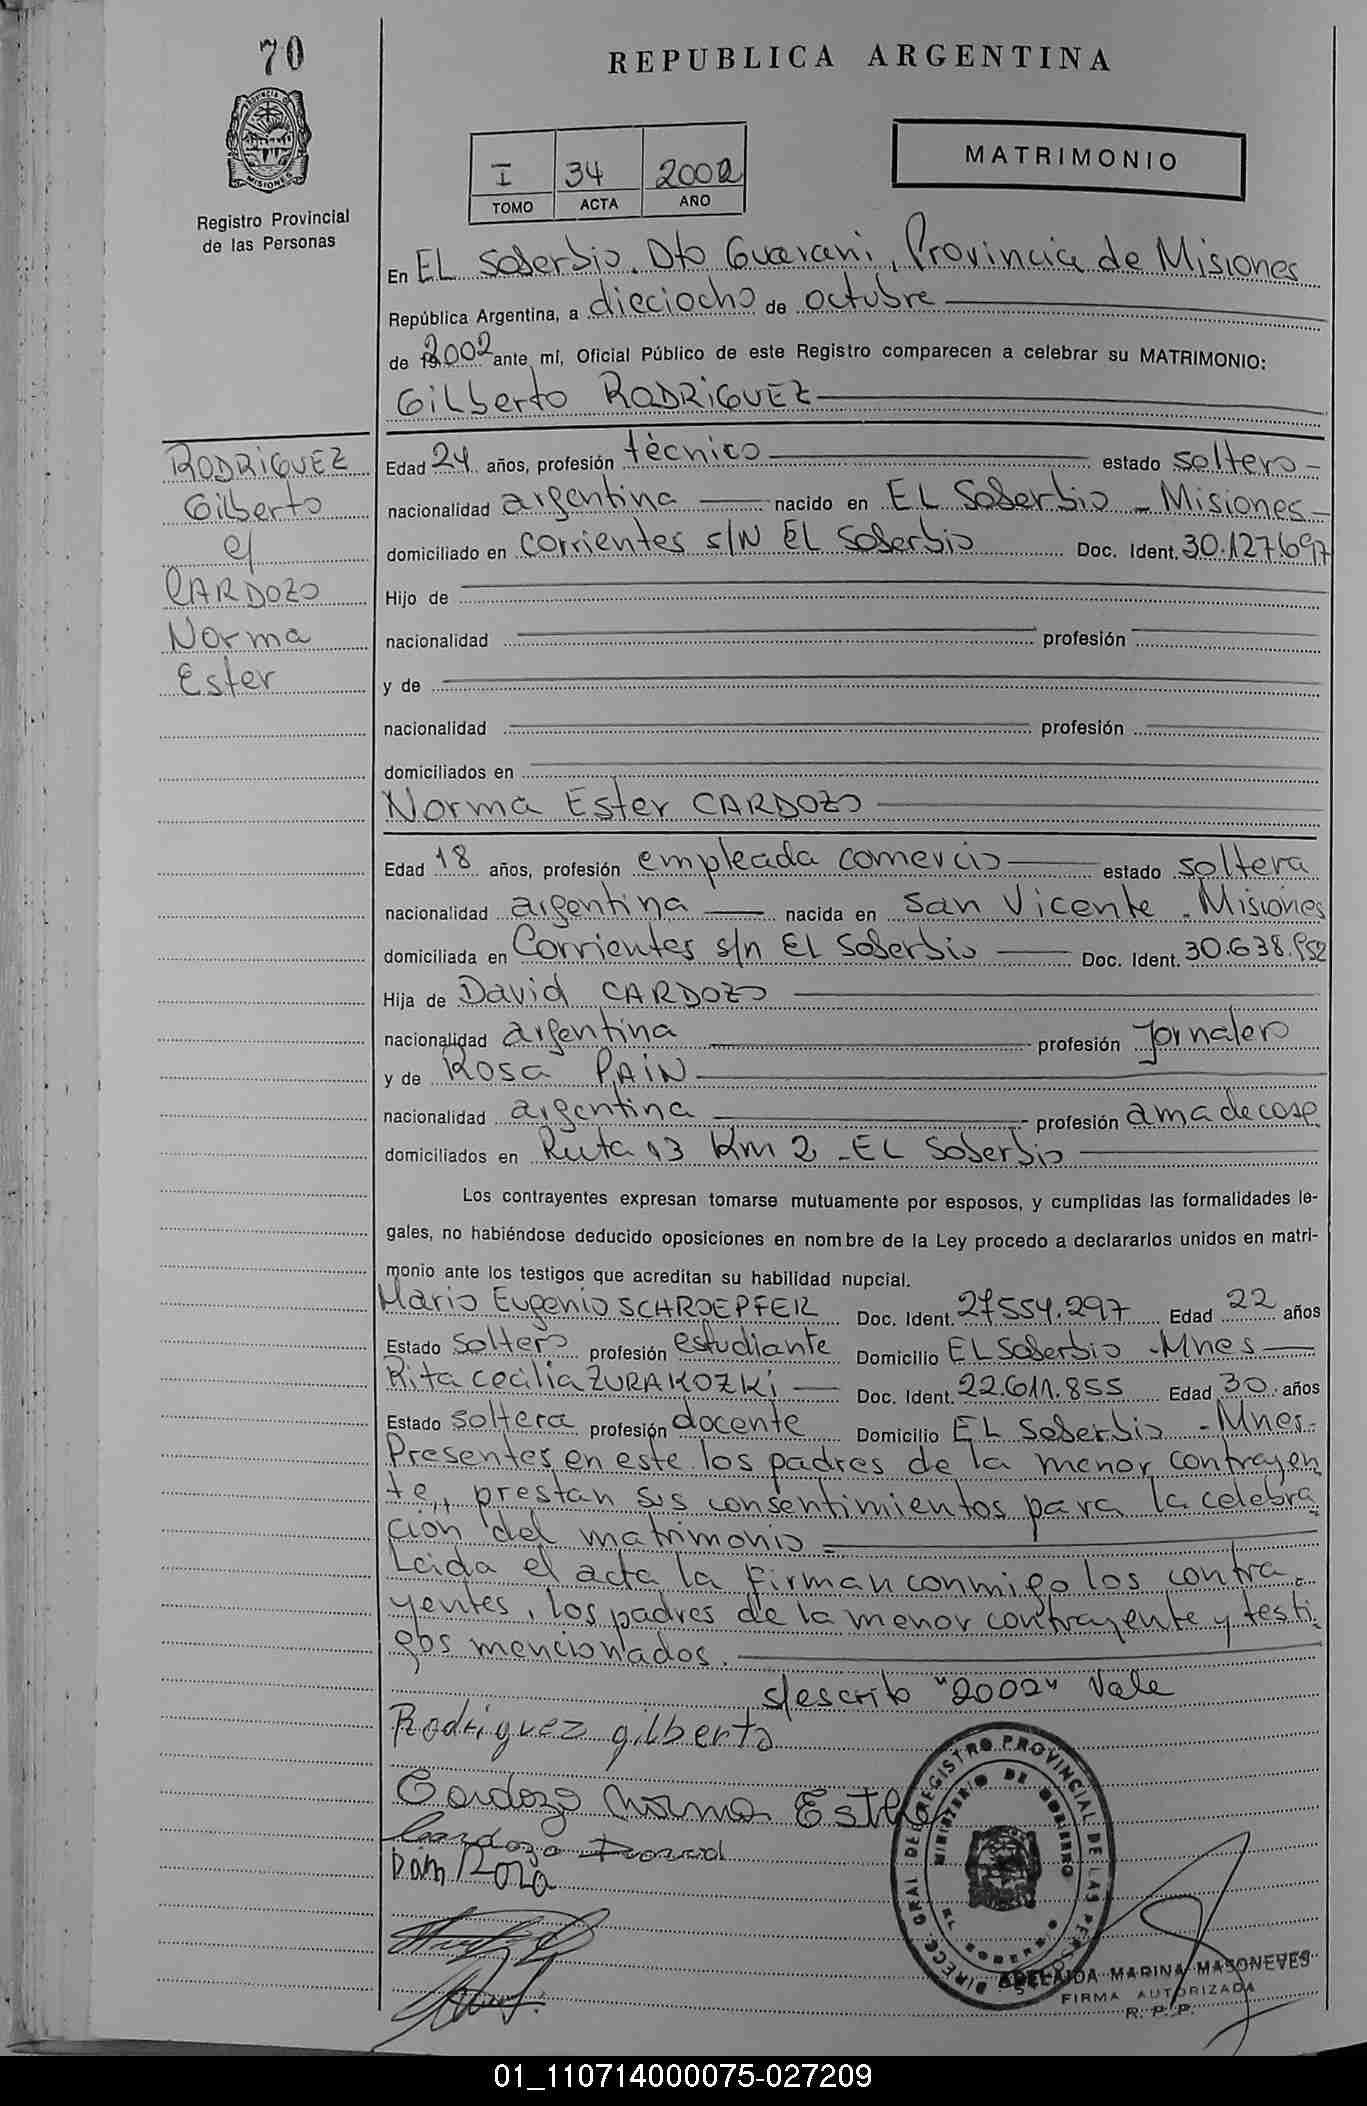 70
REPUBLICA ARGENTINA
PROVINCIA D
MISIONES
Registro Provincial
de las Personas
MATRIMONIO
I 34 2002
TOMO ACTA AÑO
En EL Soberbio. Dto Guarani, Provincia de Misiones
República Argentina, a dieciocho de octubre
de 2002 ante mí, Oficial Público de este Registro comparecen a celebrar su MATRIMONIO:
Gilberto RODRIGUEZ
RODRIGUEZ
Gilberto
c/
CARDOZO
Norma
Ester
Edad 24 años, profesión técnico estado soltero
nacionalidad argentina nacido en EL Soberbio - Misiones
domiciliado en corrientes s/N EL Soberbio Doc. Ident. 30.127.697
Hijo de
nacionalidad profesión
y de
nacionalidad profesión
domiciliados en
Norma Ester CARDOZO
Edad 18 años, profesión empleada comercio estado soltera
nacionalidad argentina nacida en San Vicente - Misiones
domiciliada en Corrientes s/n EL Soberbio Doc. Ident. 30.638.952
Hija de David CARDOZO
nacionalidad argentina profesión Jornalero
y de Rosa PAIN
nacionalidad argentina profesión ama de casa
domiciliados en Ruta 13 Km 2 - EL Soberbio
Los contrayentes expresan tomarse mutuamente por esposos, y cumplidas las formalidades le-
gales, no habiéndose deducido oposiciones en nombre de la Ley procedo a declararlos unidos en matri-
monio ante los testigos que acreditan su habilidad nupcial.
Mario Eugenio SCHROEPFER Doc. Ident. 27554.297 Edad 22 años
Estado soltero profesión estudiante Domicilio EL Soberbio - Mnes
Rita Cecilia ZURAKOZKi Doc. Ident. 22.611.855 Edad 30 años
Estado soltera profesión docente Domicilio EL Soberbio - Mnes
Presentes en este los padres de la menor contrayen
te, prestan sus consentimientos para la celebra
ción del matrimonio
Leida el acta, la firman conmigo los contra
yentes, los padres de la menor contrayente y testi
gos mencionados.
s/escrito "2002" Vale
Rodriguez gilberto
Cardozo Norma Ester
Cardozo David
Pain Roza
DIREC. GRAL. DEL REGISTRO PROVINCIAL DE LAS PERSONAS
MINISTERIO DE GOBIERNO
EL SOBERBIO
ADELAIDA MARINA MASONEVES
FIRMA AUTORIZADA
R. P. P.
01_110714000075-027209